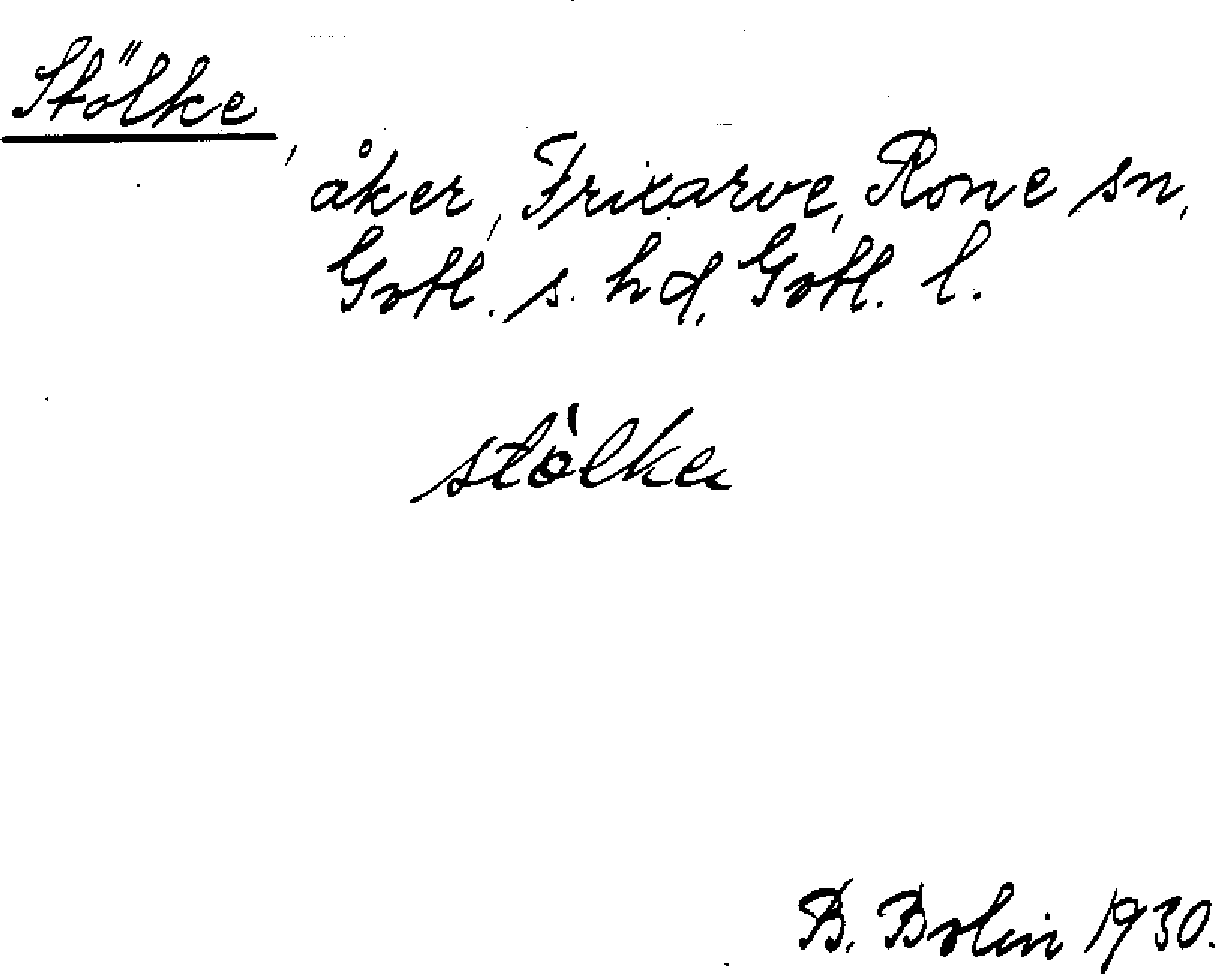 Stölke,
åker, Frixarve, Rone sn,
Gotl. s. hd, Gotl. l.
stölke
B. Bolin 1930.